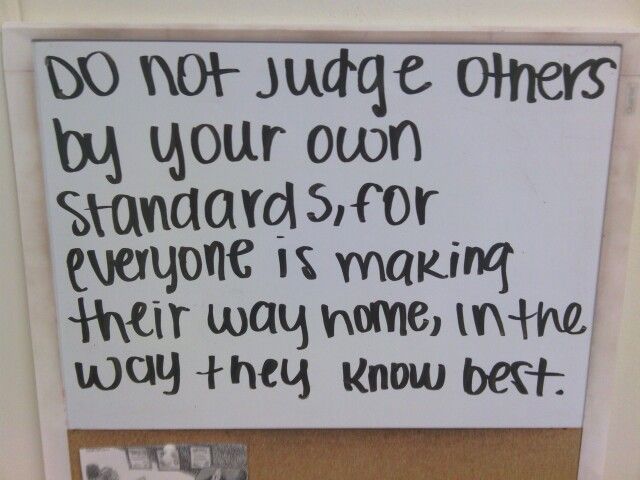 DO not Judge others
by your own
standards, for
everyone is making
their way home, in the
way they know best.